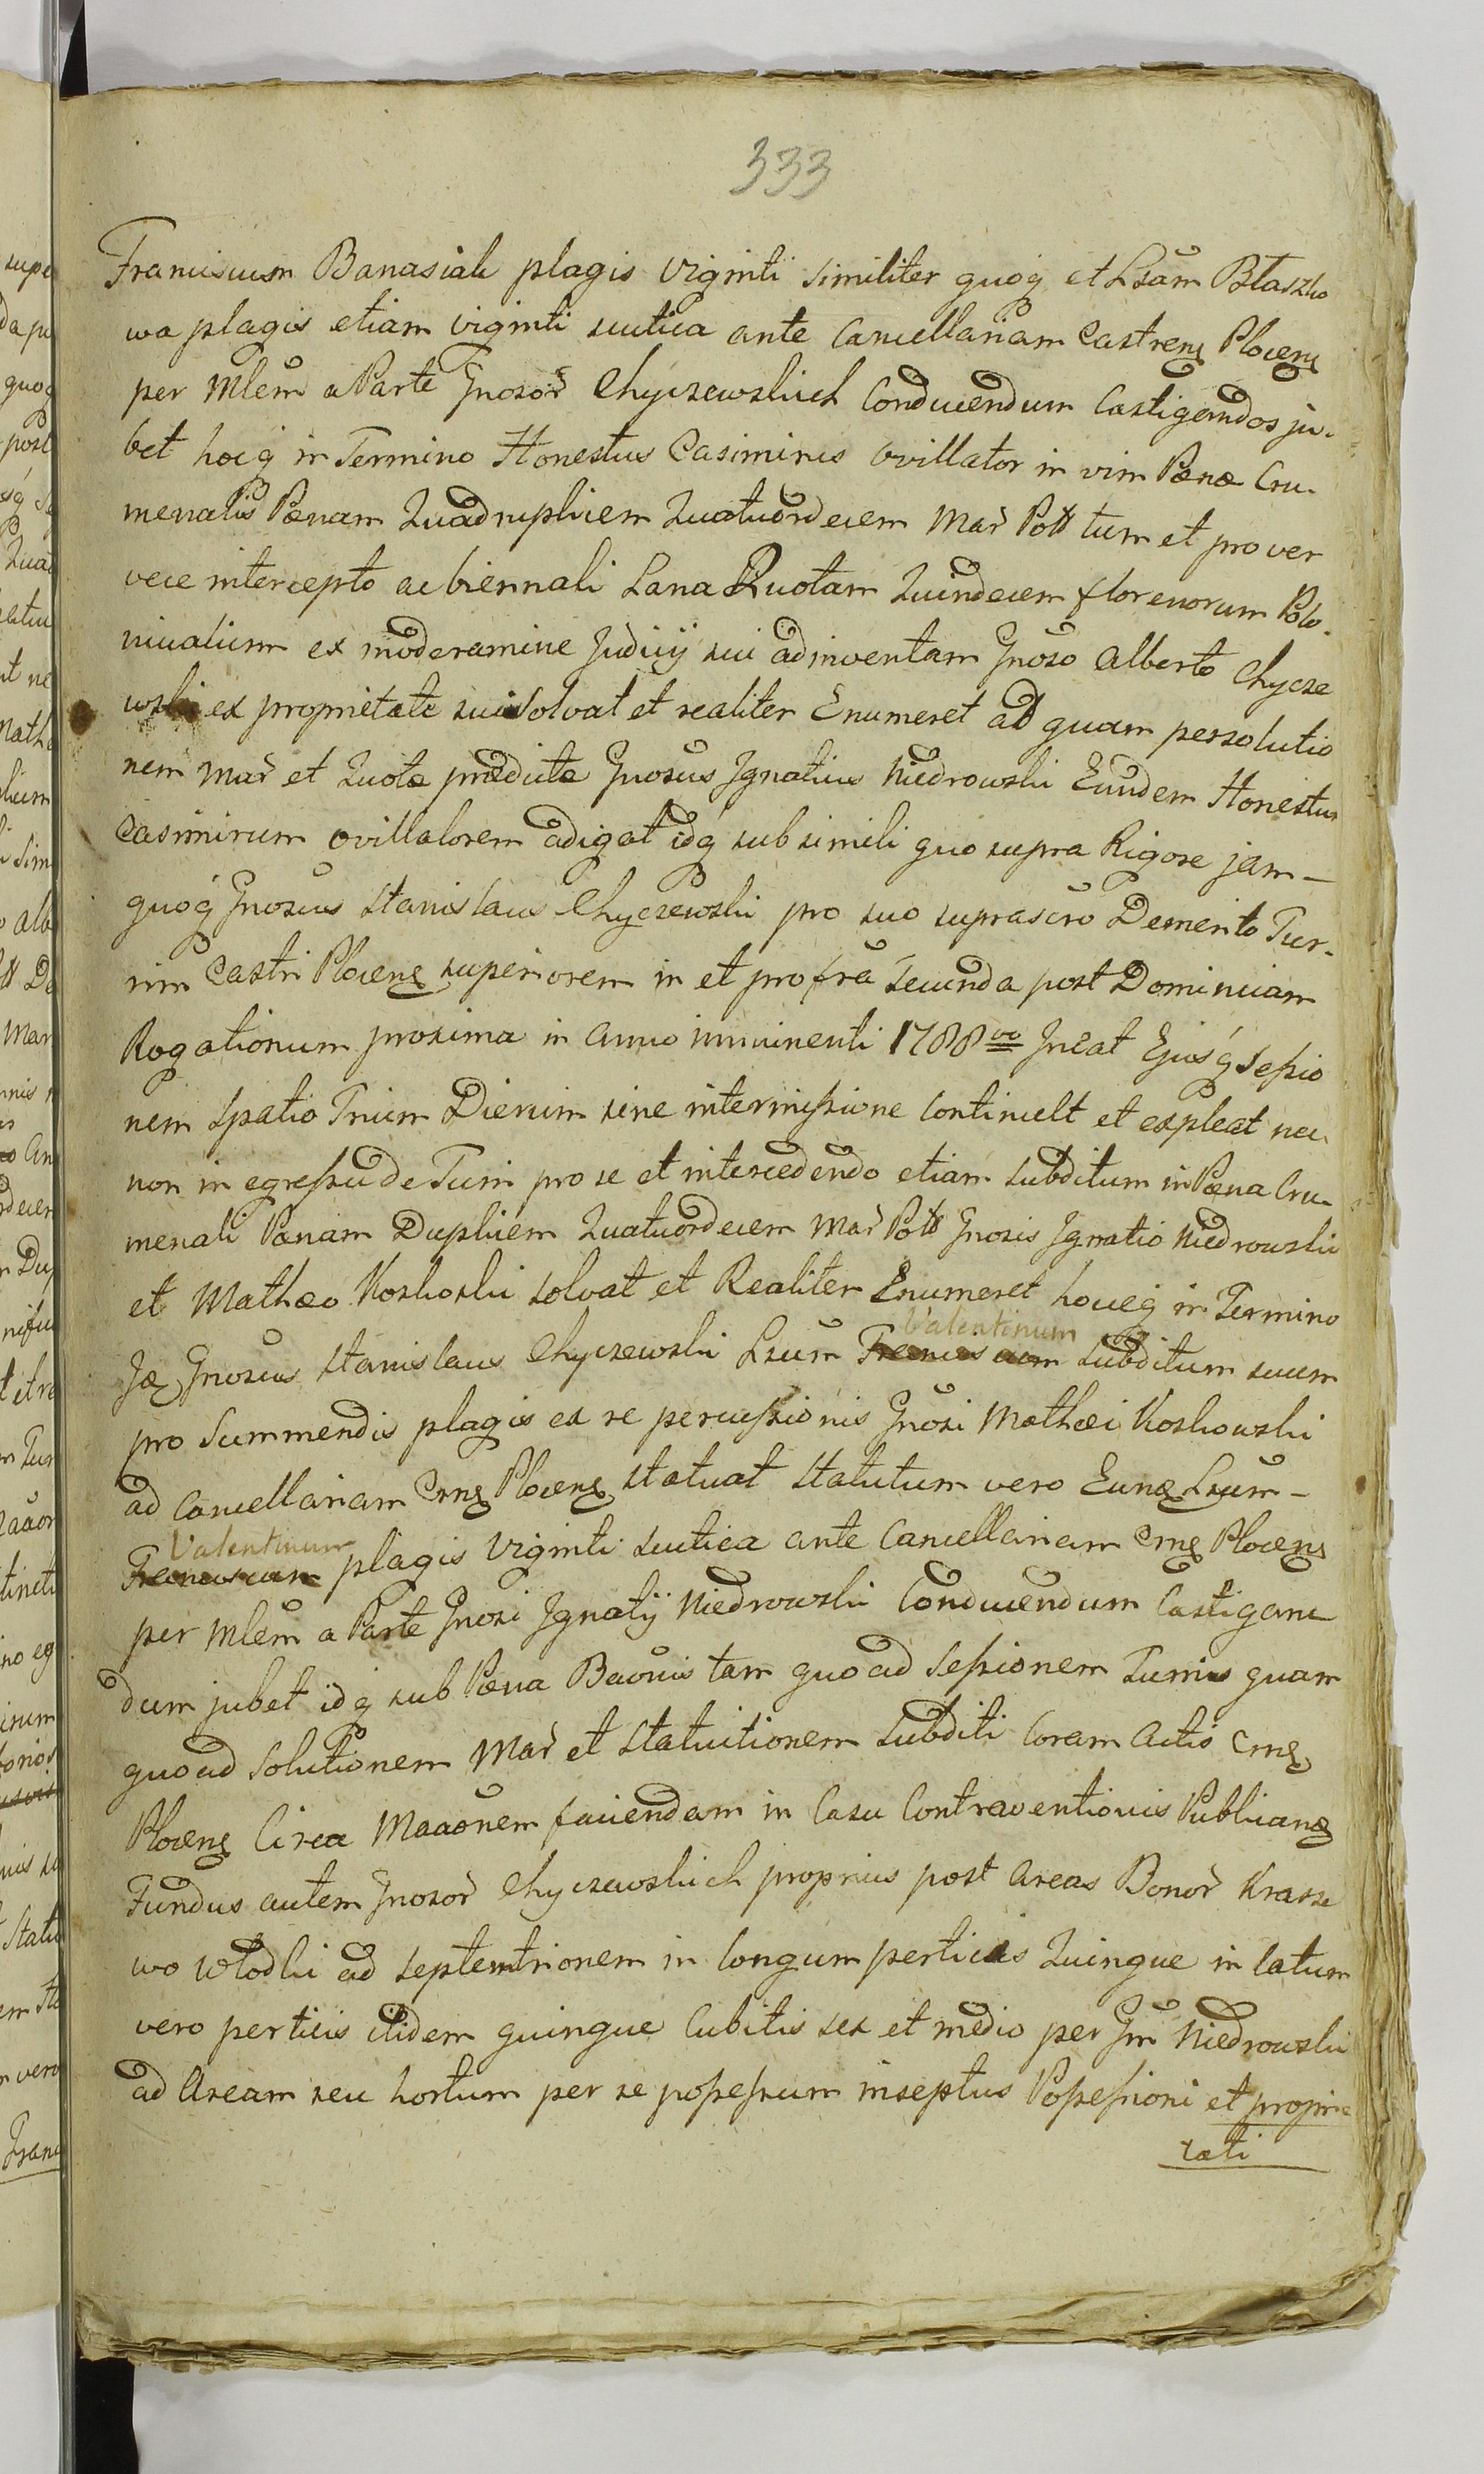 333
Franciscum Banasiak plagis viginti similiter quoq et Lsam Błaszko
wa plagis etiam viginti scutica ante Cancellariam Castren Plocen
per Mlem a Parte Gnosor Chyczewskich Conducendum Castigandos ju-
bet hocq in Termino Honestus Casimirus ovillator in vim Pænæ Cru-
menalis Pænam Quadruplicem Quatuordecem Mar Poll tum et pro ver
vece intercepto ac biennali Lana Quotam Quindecem florenorum Polo-
nicalium ex moderamine Judicij sui adinventam Gnoso Alberto Chycze
wski ex proprietate sui solvat et realiter Enumeret ad quam persolutio
nem Mar et Quotæ prædictæ Gnosus Ignatius Niedrowski Eundem Honestum
Casimirum ovillatorem adigat idq sub simili quo supra Rigore jam –
quoq Gnosus Stanislaus Chyczewski pro suo suprascro Demerito Tur-
rim Castri Plocen superiorem in et pro fra secunda post Dominicam
Rogationum proxima in Anno imminenti 1788vo Ineat Ejusq Sessio
nem spatio Trium Dierum sine intermissione Continuet et expleat nec
non in egressu de Turri pro se et intercedendo etiam subditum in Pæna Cru-
menali Pænam Duplicem Quatuordecem Mar Poll Gnosis Ignatio Niedrowski
et Mathæo Koskoski solvat et Realiter Enumeret hoceq in Termino
Valentinum
Jæ Gnosus Stanislaus Chyczewski Lsum Franciscum subditum suum
pro Summendis plagis ex re percussionis Gnosi Mathæi Koskowski
ad Cancellariam Crne Plocen statuat Statutum vero Eunæ Lsum –
Valentinum
Franciscum plagis viginti scutica ante Cancellariam Crne Plocen
per Mlem a Parte Gnosi Ignatij Niedrowski Conducendum Castigan
dum jubet idq sub Pæna Baonis tam quoad Sessionem Turris quam
quoad Solutionem Mar et Statuitionem subditi Coram Actis Crne
Plocen Circa Maaonem faciendam in Casu Contraventionis Publicanæ
Fundus autem Gnosor Chyczewskich proprius post Areas Bonor Krasze
wo Włodki ad septemtrionem in longum perticis Quinque in latum
vero perticis itidem quinque Cubitis sex et medio per Gm Niedrowski
ad Aream seu hortum per se possessum inseptus Possessioni et proprie
tati